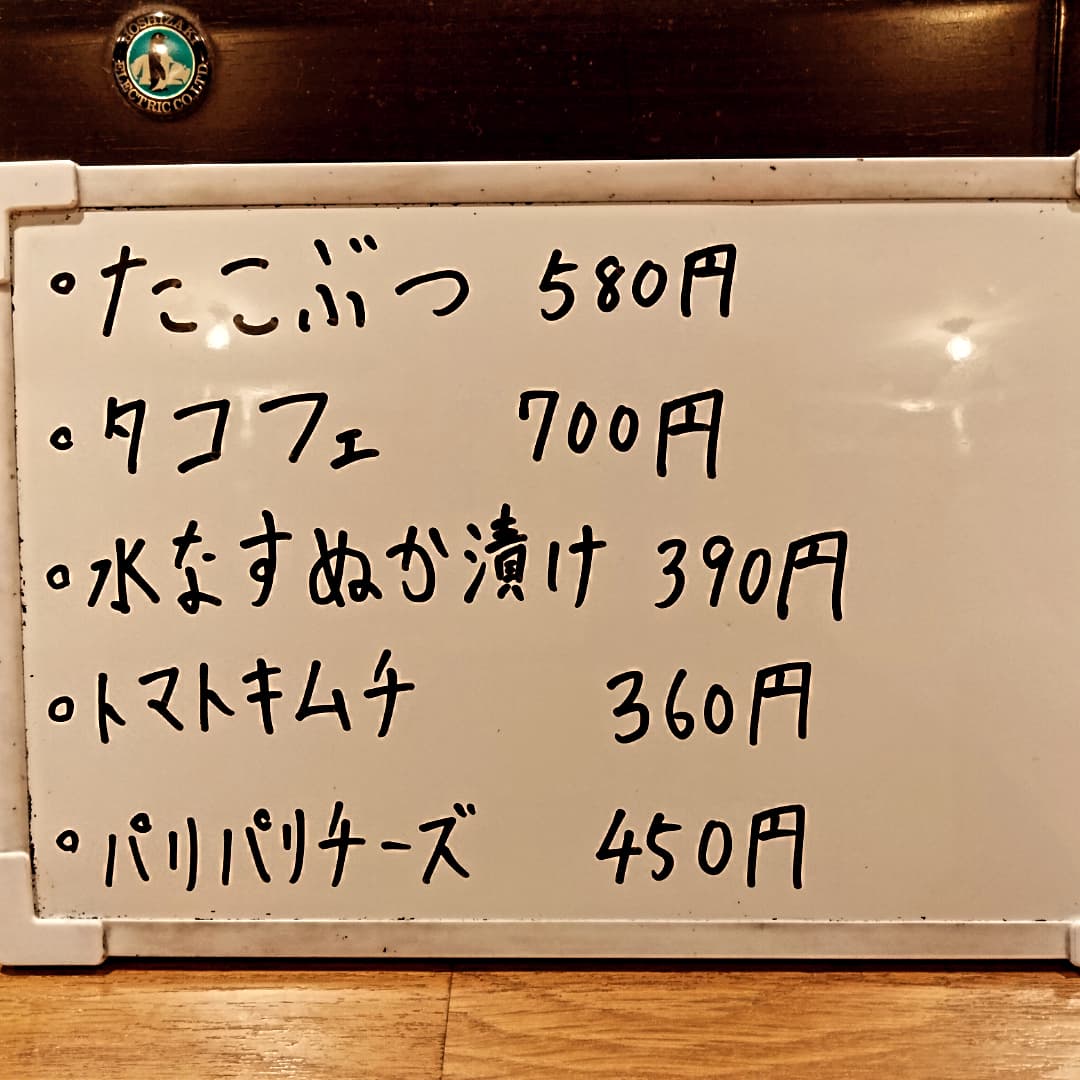 HOSHIZAKI
ELECTRIC CO.LTD.
・たこぶつ 580円
・タコフェ 700円
・水なすぬか漬け 390円
・トマトキムチ 360円
・パリパリチーズ 450円